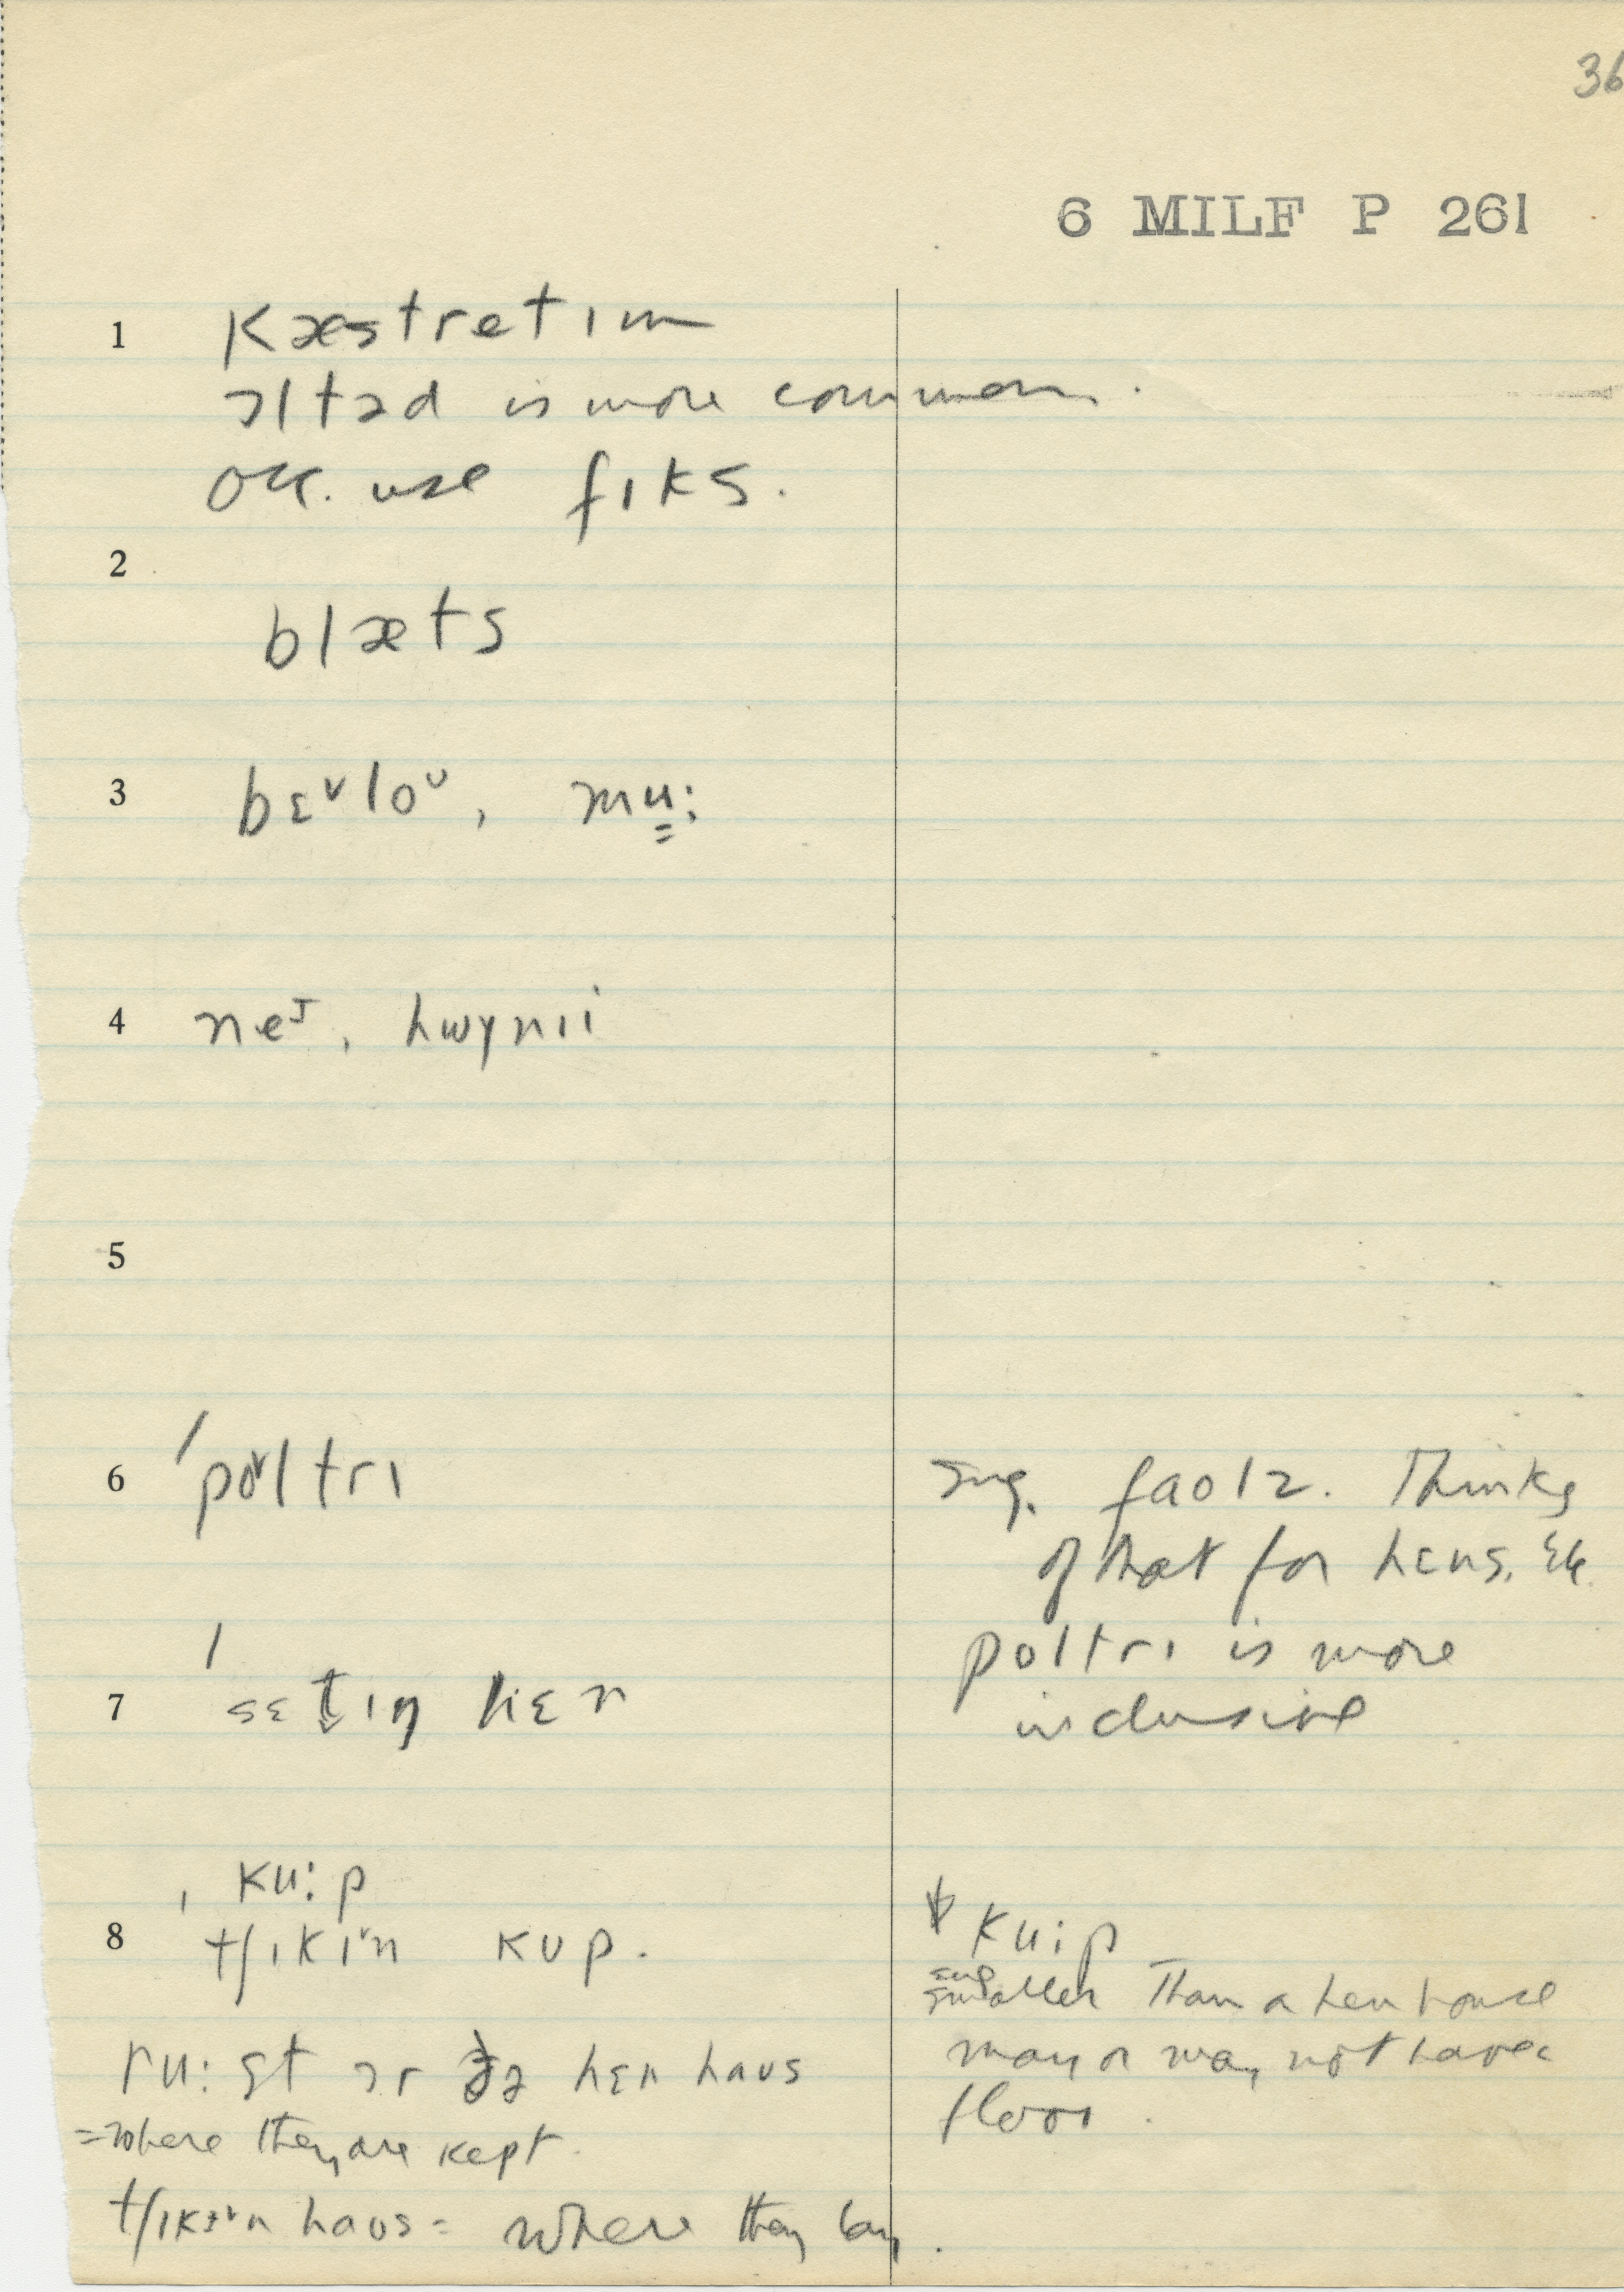 36
6 MILF P 261
1 kæstretɪm
ɔltəd is more common.
occ. use fɪks.
2
blæts
3 bɛ˅lo ᶷ, mu̳:
4 neᴵ, hwɪnɪi
5
6 ˈpo˅ltrɪ
sug. faolz. Thinks
of that for hens, etc.
poltrɪ is more
inclusive
7 ˈsɛt̬ɪŋ hɛn
ku:p
8 tʃɪkɪ˅n kup.
ku:p
smaller than a hen house
may or may not have a
floor.
ru:st ɔr ðə hɛn haus
= where they are kept.
tʃɪkɪ˅n haus = where they lay.